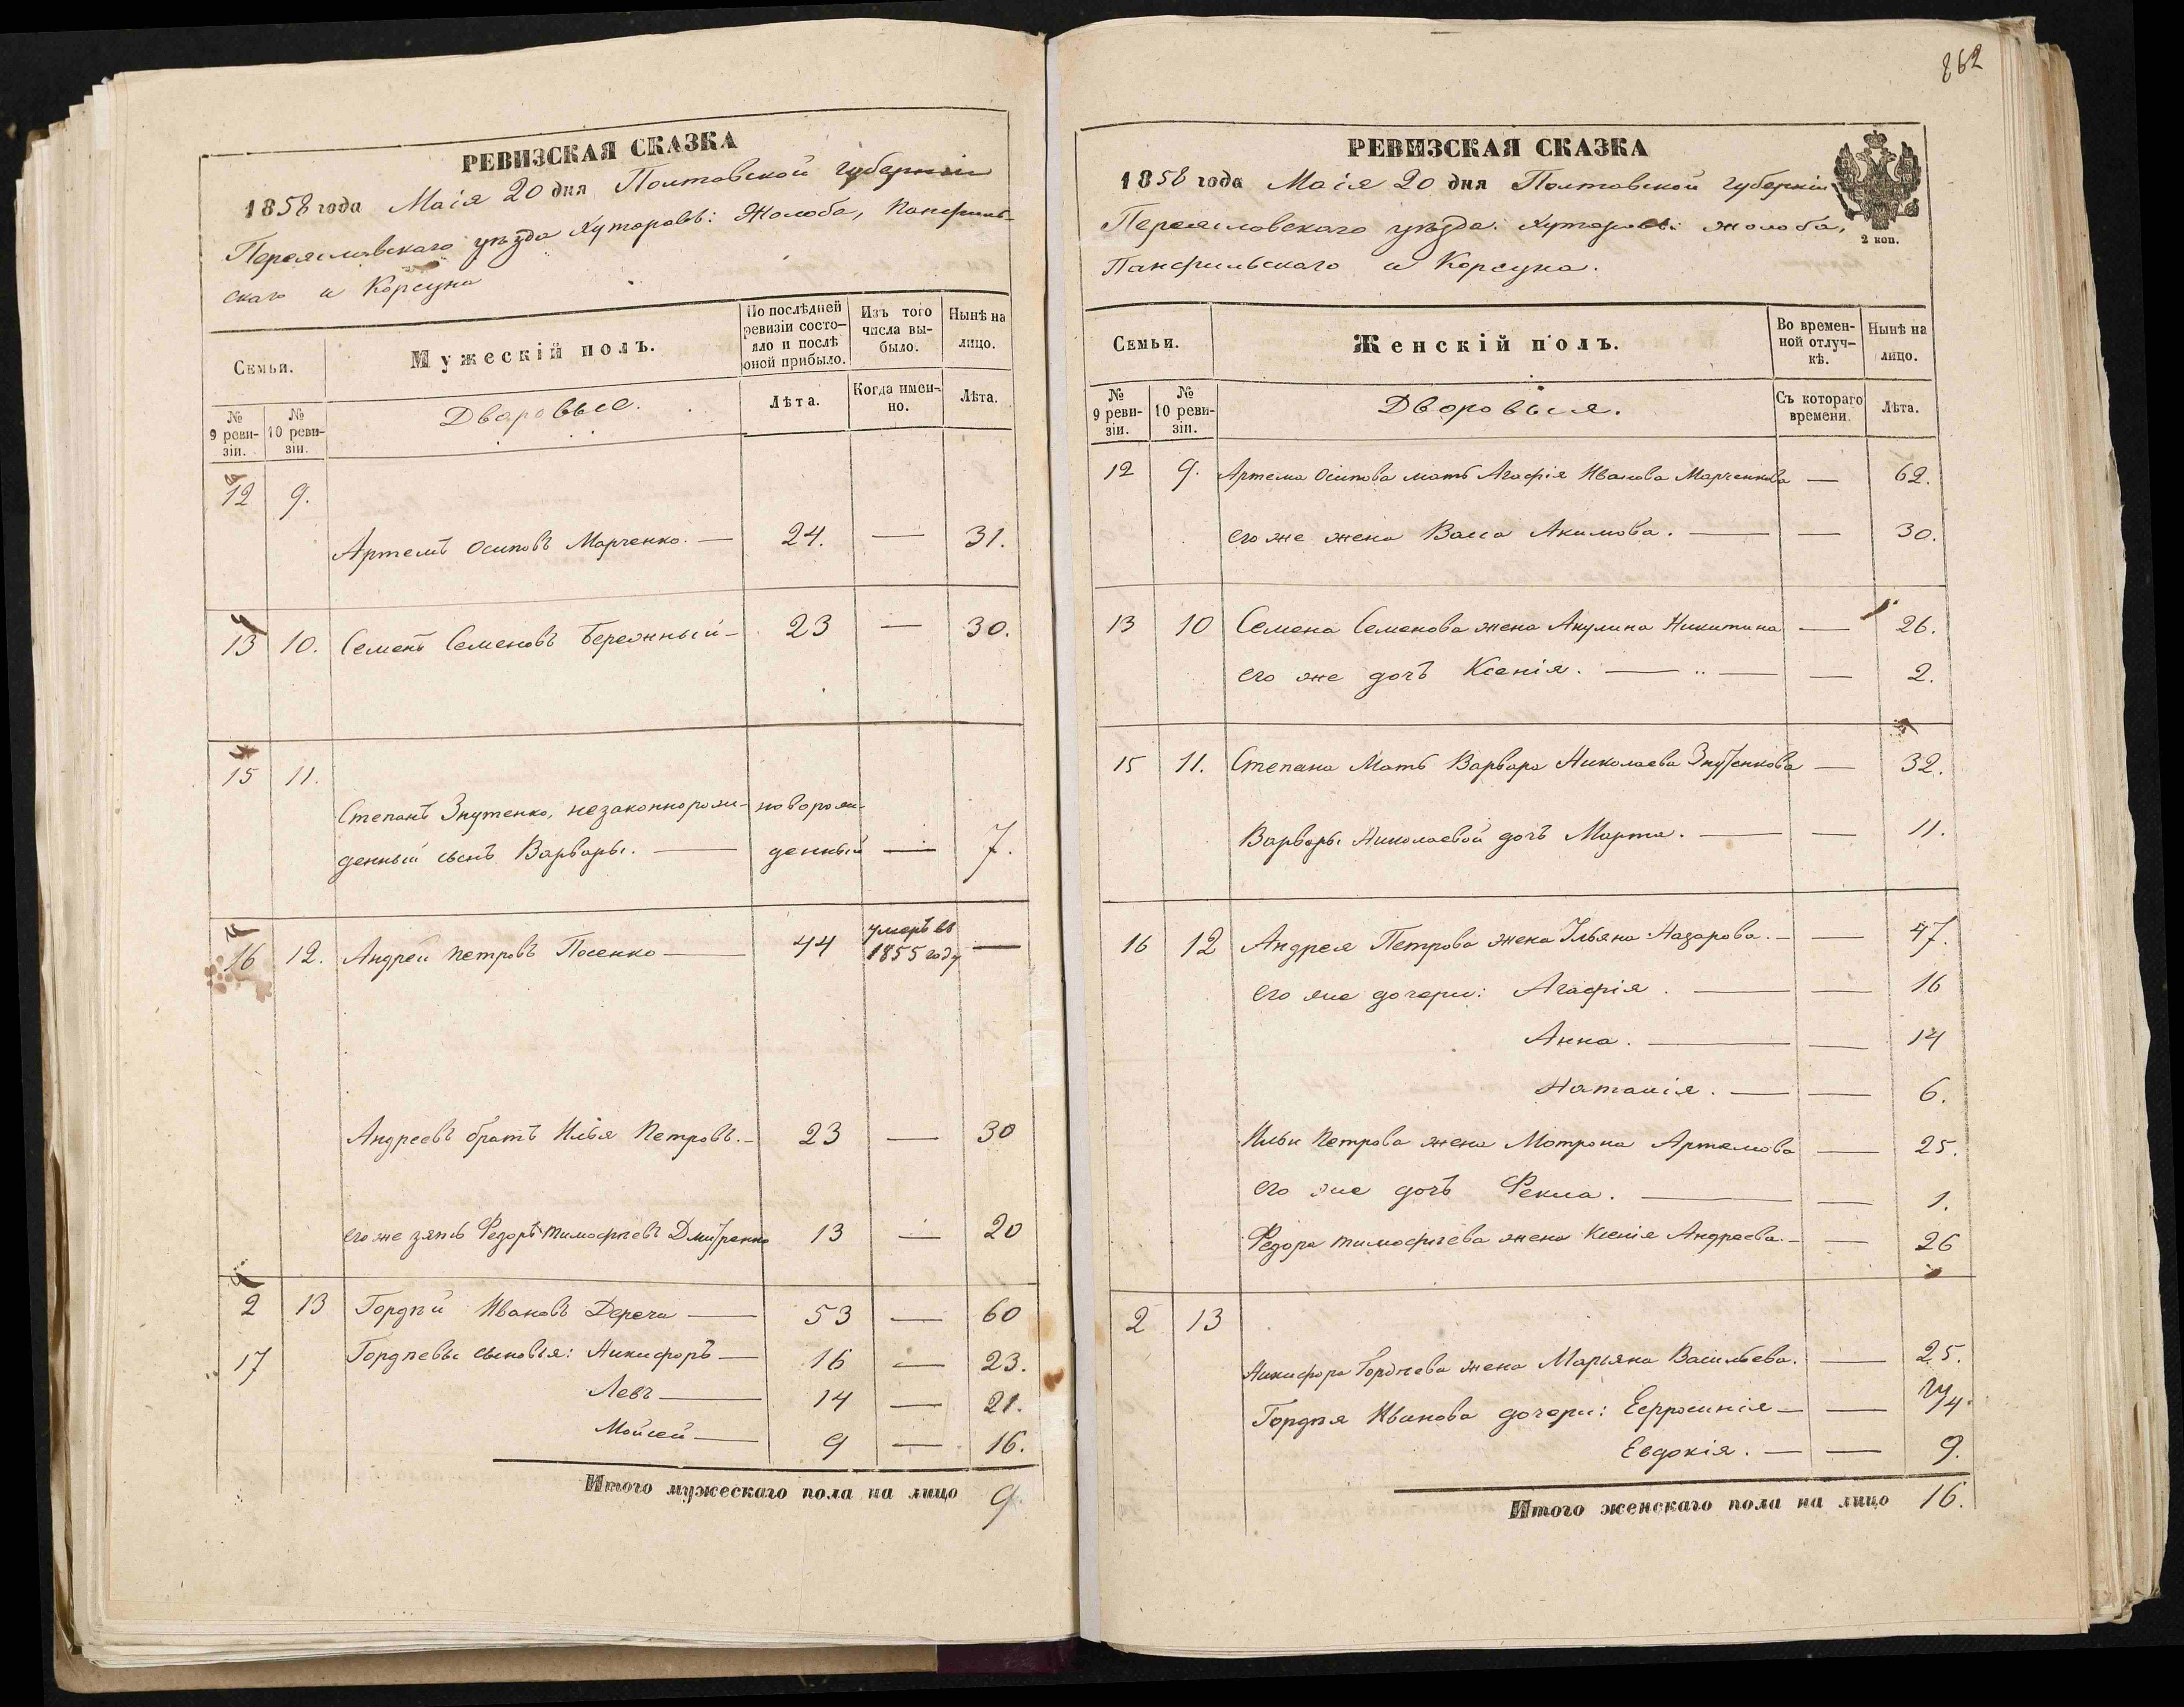 РЕВИЗСКАЯ СКАЗКА
1858 года Маія 20 дня Полтавской губерніи
Переяславскаго уѣзда Хуторовъ: Жолоба, Панфиль-
скаго и Корсуна
Семьи.
Мужескій полъ.
По послѣдней ревизіи состо-
яло и послѣ оной прибыло.
Изъ того числа вы-
было.
Нынѣ на лицо.
№ 9 реви-
зіи.
№ 10 реви-
зіи.
Дворовые.
Лѣта.
Когда имен-
но.
Лѣта.
12 9.
Артемъ Осиповъ Марченко. — 24. — 31.
13 10. Семенъ Семеновъ Бережный — 23 — 30.
15 11.
Степанъ Знутенко, незаконнорож- новорож-
денный сынъ Варвары. — денный — 7.
16 12. Андрей Петровъ Посенко — 44 умеръ въ 1855 году —
Андреевъ братъ Илья Петровъ. — 23 — 30
его же зять Федоръ Тимофѣевъ Дмитренко 13 — 20
2 13 Гордѣй Ивановъ Деречи — 53 — 60
17 Гордѣевы сыновья: Никифоръ — 16 — 23.
Левъ — 14 — 21.
Мойсей — 9 — 16.
Итого мужескаго пола на лицо 9
862
РЕВИЗСКАЯ СКАЗКА
1858 года Маія 20 дня Полтавской губерніи
2 коп.
Переяславскаго уѣзда: Хуторовъ: Жолоба,
Панфильскаго и Корсуна.
Семьи.
Женскій полъ.
Во времен-
ной отлуч-
кѣ.
Нынѣ на лицо.
№ 9 реви-
зіи.
№ 10 реви-
зіи.
Дворовыя.
Съ котораго времени.
Лѣта.
12 9. Артема Осипова мать Агафія Иванова Марченкова — 62.
его же жена Васса Акимова. — — 30.
13 10 Семена Семенова жена Акулина Никитина — 26.
его же дочь Ксенія. — — — 2.
15 11. Степана Мать Варвара Николаева Знутенкова — 32.
Варвары Николаевой дочь Марта. — — 11.
16 12 Андрея Петрова жена Ульяна Назарова. — — 47.
его же дочери: Агафія. — — 16
Анна. — — 14
Наталія. — — 6.
Ильи Петрова жена Мотрона Артемова — 25.
его же дочь Фекла. — — 1.
Федора Тимофѣева жена Ксенія Андреева. — — 26
2 13
Никифора Гордѣева жена Марьяна Васильева. — 25.
Гордѣя Иванова дочери: Ефросинія — — 14.
Евдокія. — — 9.
Итого женскаго пола на лицо 16.